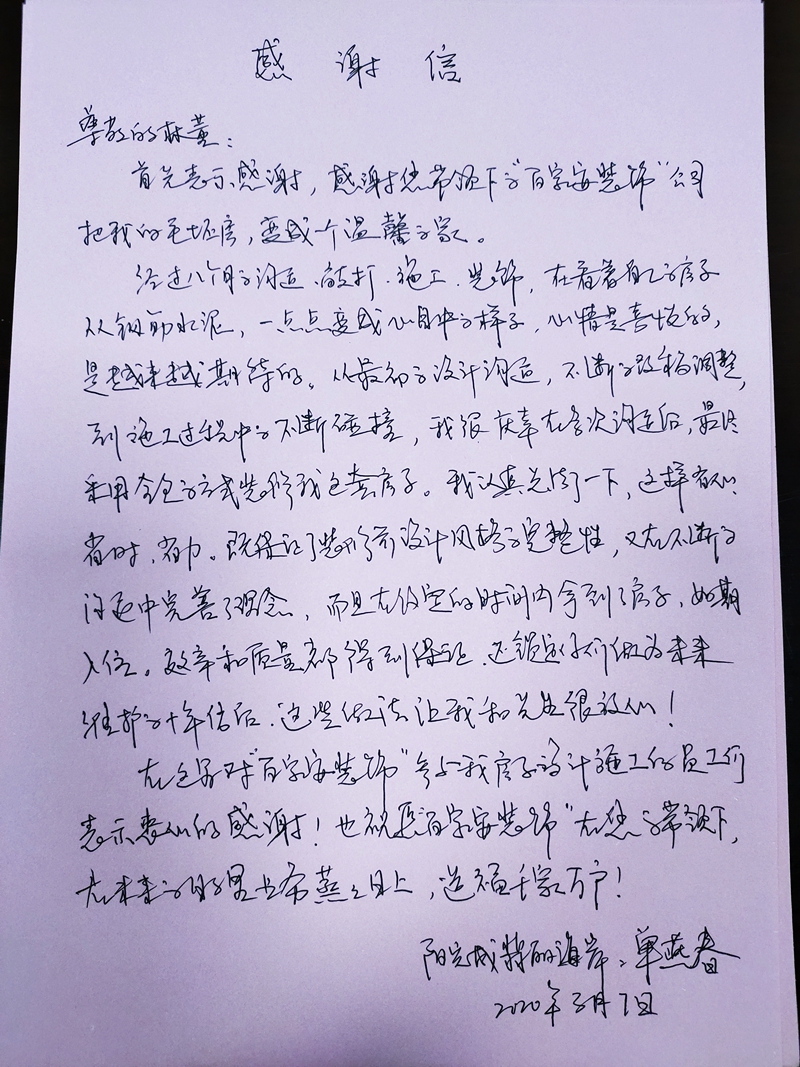 感谢信
尊敬的林董：
首先表示感谢，感谢您带领下的“百字安装饰”公司
把我的毛坯房，变成一个温馨的家。
经过八个月的沟通、敲打、施工、装饰，在看着自己的房子
从钢筋水泥，一点点变成心目中的样子，心情是喜悦的，
是越来越期待的。从最初的设计沟通，不断的改稿调整，
到施工过程中的不断碰撞，我很庆幸在多次沟通后，最终
采用全包的方式装修我这套房子。我认真总结了一下，这样省心、
省时、省力。既保证了装修前设计风格的完整性，又在不断的
沟通中完善了理念，而且在约定的时间内拿到了房子，如期
入住。效率和质量都得到保证，还锁定你们做为未来
维护的十年售后，这些做法让我和先生很放心！
在这里对“百字安装饰”参与我房子设计施工的员工们
表示衷心的感谢！也祝愿“百字安装饰”在您的带领下，
在未来的日子里其蒸蒸日上，送福千家万户！
阳光城特丽海岸：单燕春
2020年3月7日